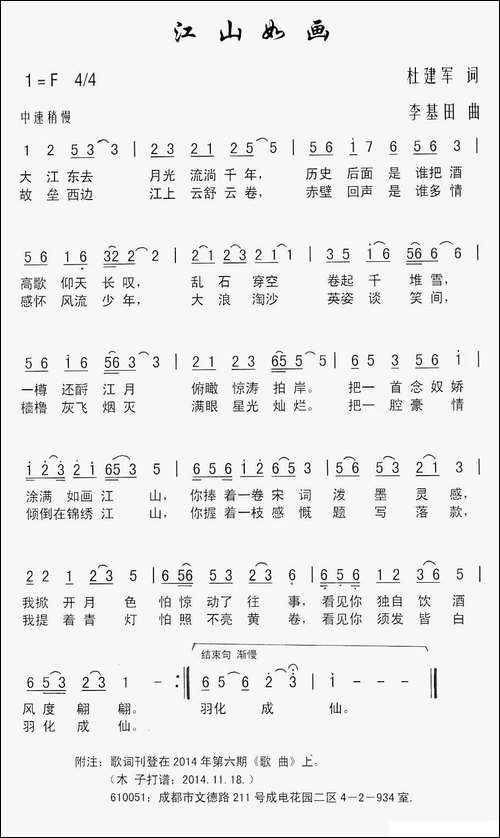 江山如画
1=F 4/4
杜建军 词
中速稍慢
李基田 曲
1 2 5 3 3 | 2 3 2 1 2 5 5 | 5 6 1 7 6 5 3 |
大 江 东去 月光 流淌 千 年, 历史 后面 是 谁把 酒
故 垒 西边 江上 云舒 云 卷, 赤壁 回声 是 谁多 情
5 6 1 6 3 2 2 2 | 2 1 2 1 2 1 1 | 3 5 1 6 5 6 6 6 |
高歌 仰天 长 叹, 乱 石 穿空 卷起 千 堆 雪,
感怀 风流 少 年, 大 浪 淘沙 英姿 谈 笑 间,
5 6 1 6 5 6 3 3 | 2 1 2 3 6 5 5 5 | 6 5 3 5 6 6 1 |
一樽 还酹 江 月 俯瞰 惊涛 拍 岸。 把一 首 念 奴 娇
樯橹 灰飞 烟 灭 满眼 星光 灿 烂。 把一 腔 豪 情
1 2 3 2 1 6 5 3 5 | 5 6 5 6 1 2 2 1 | 1 5 2 2 3 3 |
涂满 如画 江 山, 你捧 着一 卷 宋 词 泼 墨 灵 感,
倾倒 在锦绣 江 山, 你握 着一 枝 感 慨 题 写 落 款,
2 2 1 2 3 5 | 6 5 6 5 3 2 3 6 | 6 5 6 1 2 3 6 5 |
我掀 开 月 色 怕 惊 动 了 往 事, 看见你 独自 饮 酒
我提 着 青 灯 怕 照 不 亮 黄 卷, 看见你 须发 皆 白
结束句 渐慢
6 5 3 2 3 1 - :‖ 6 5 6 2 3 | 1 - - - ‖
风 度 翩 翩。 羽化 成 仙。
羽 化 成 仙。
附注：歌词刊登在2014年第六期《歌 曲》上。
（木 子打谱：2014.11.18.）
610051；成都市文德路211号成电花园二区4－2－934室.